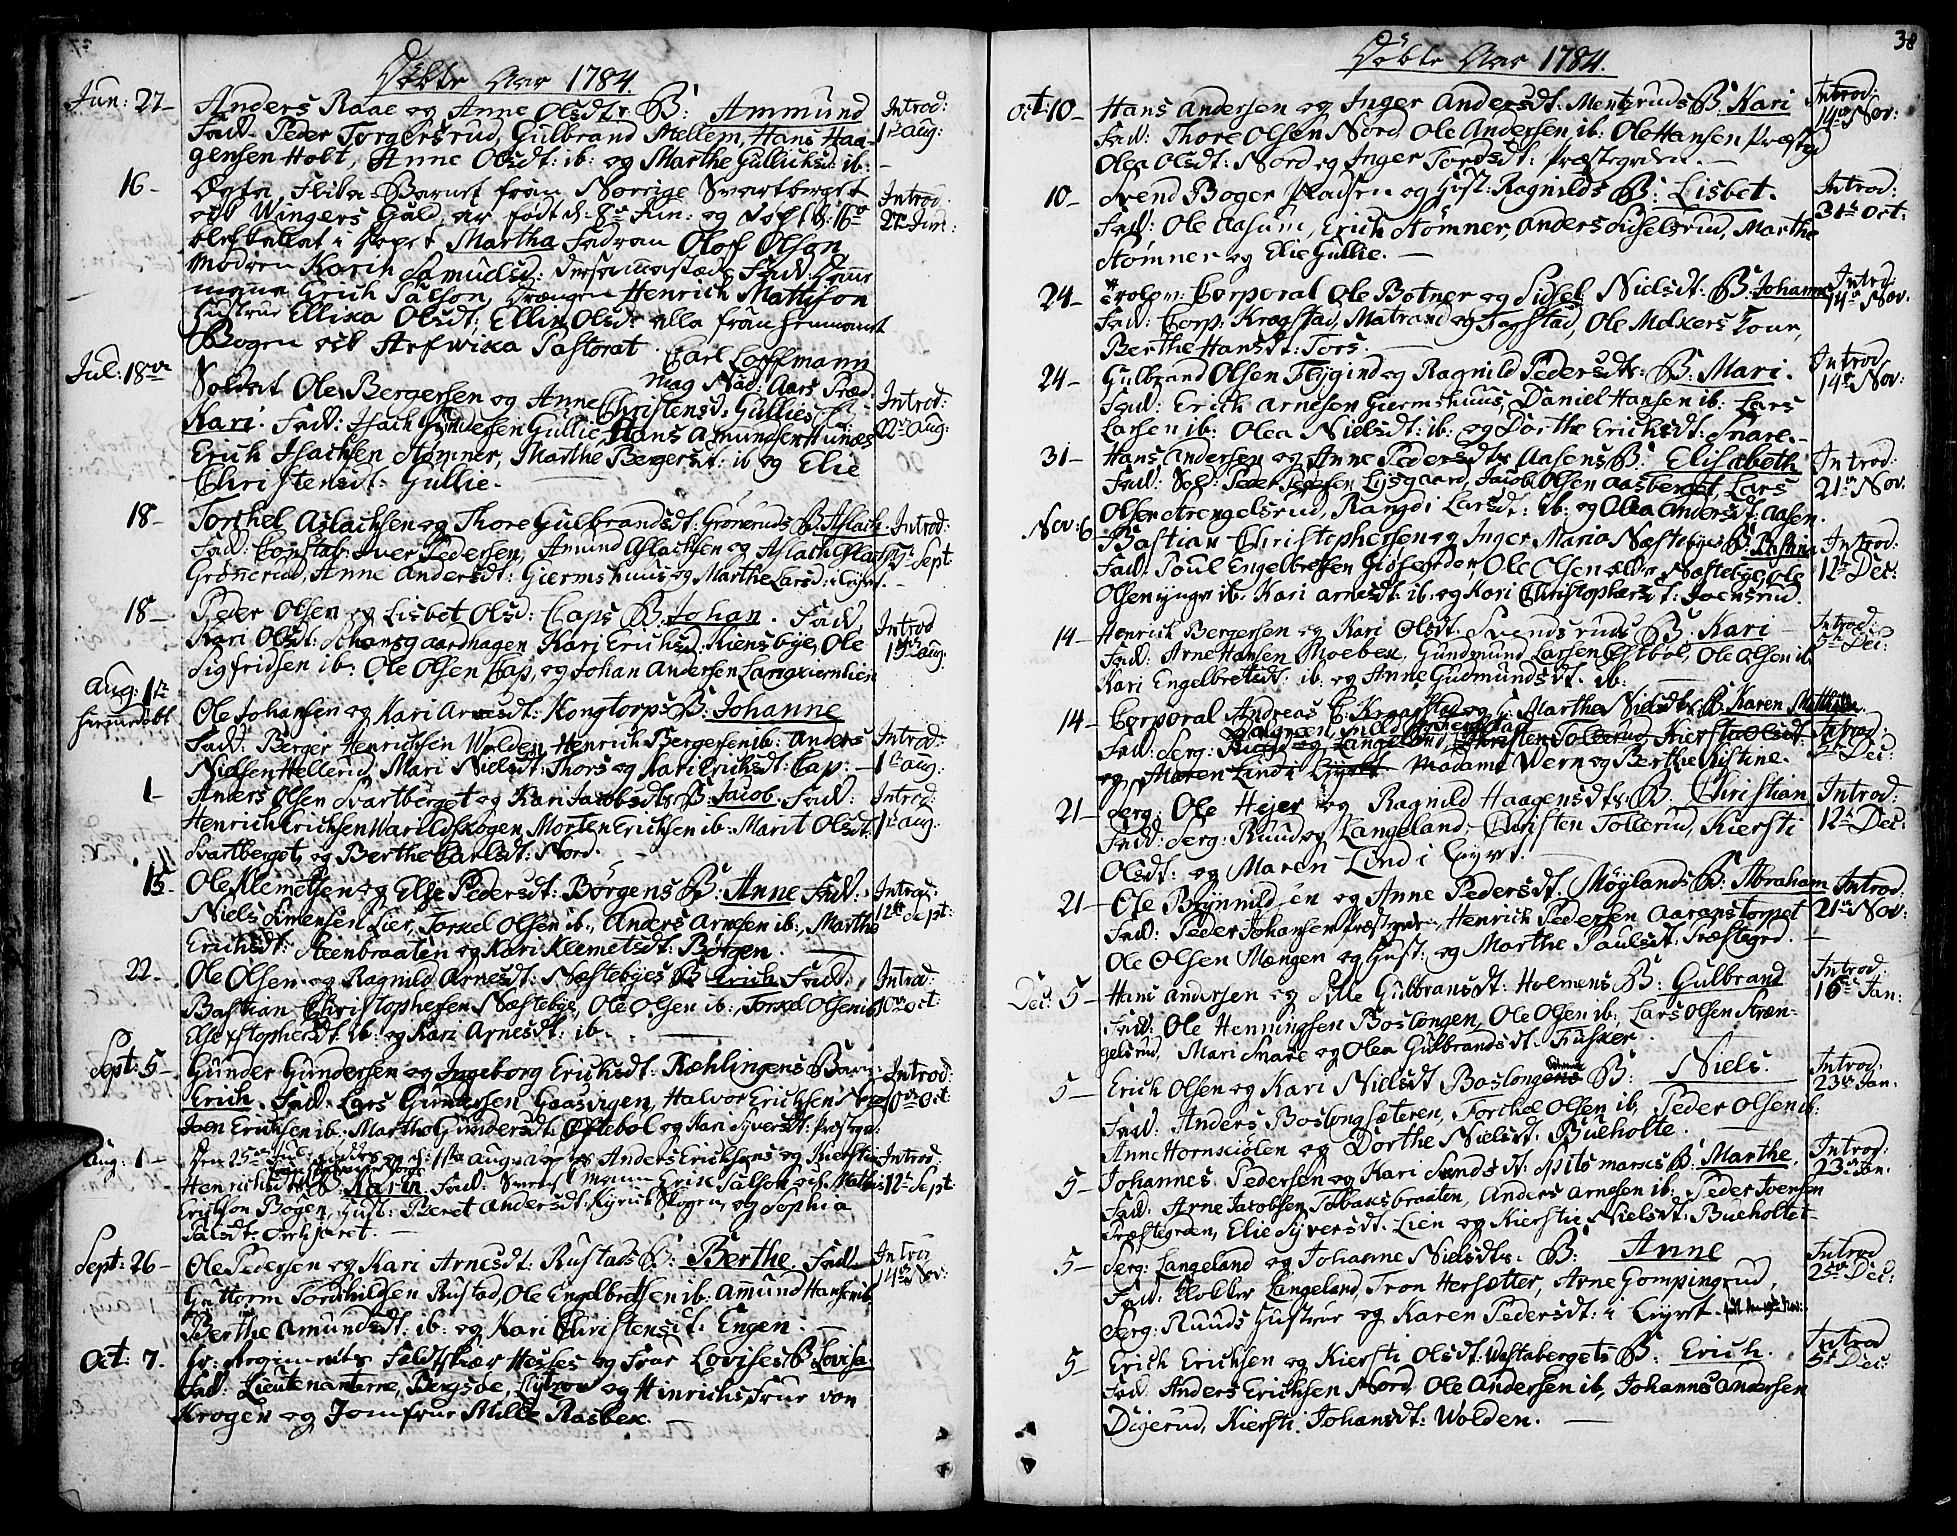 Døbte Aar 1784.
Jun: 27 - Anders Raae og Anne Olsdtr B: Ammund
Fad: Peder Torgersrud, Gulbrand Mellem, Hans Haa-
gensen Holt, Anne Olsdt: ib: og Marthe Gullichsd: ib:
Introd: 1ste aug:
16 - Barnet från Norrige Svartberget
och Wingers Gield, är födt d. 8de Jun: og döpt d: 16de
blef kallat i dopet Martha Fadran Oloff Olson
Modren Karin Samuelsd: dersammastads Fad:
Erich Palson, Drængen Henrich Mattison
Hustrue Ellika Olsdt: Ellin Olsdt: alla från hemmanet
Bogen och Arfwika Pastorat. Carl Loffmann
Introd: Jun:
Jul: 18de Soldat Ole Bergersen og Anne Christensd: Gullies B:
Kari. Fad: Isach Gundersen Gullie, Hans Amundsen Hunæs
Erich Isachsen Stømner, Marthe Bergersdt: ib og Elie
Christensdt: Gullie.
Introd: 22de Aug:
18 - Torchel Aslachsen og Thore Gulbrandsdt: Grønerud B. Aslach
Fad: Constab: Iver Pedersen, Amund Aslachsen og Aslach
Grønerud, Anne Andersdt: Giermshuus og Marthe Larsd: i Eyset.
Introd: Sept:
18 - Peder Olsen og Lisbet Olsd: Caps B. Johan. Fad:
Kari Olsdt: Schansgaardhagen, Kari Erichsd: Riensbye, Ole
Sigfridsen ib: Ole Olsen Cap, og Johan Andersen Langkiernlien
Introd 15de aug:
Aug: 1te hiemedøbt Ole Johansen og Kari Arnesdt: Kongtorps B: Johanne
Fad: Berger Henrichsen Wolden, Henrich Bergersen ib: Anders
Nielsen Hellerud, Mari Nielsdt: Thors og Kari Erichsdt: Cap.
Introd: 1te aug:
1 - Anders Olsen Svartberget og Kari Jacobsdtr B: Jacob. Fad:
Henrich Erichsen Warildskogen, Morten Erichsen ib: Marit Olsdt:
Svartberget, og Berthe Carlsdt: Nord.
Introd: 1te aug:
15 - Ole Klemetsen og Else Pedersdt: Børgens B: Anne Fad:
Niels Simensen Lier, Torkel Olsen ib:, Anders Arnesen ib:, Marthe
Erichsdt: Steenbraaten og Kari Klemetsdt: Børgen.
Introd: 12te Sept:
22 - Ole Olsen og Ragnild Arnesdt: Næstebyes B: Erich Fad:
Bastian Christophersen Næstebye, Ole Olsen ib:, Torkel Olsen ib
Else Xstophersdt ib: og Kari Arnesdt: ib:
Introd: 10de oct:
Sept: 5 - Gunder Gundersen og Ingeborg Erichsdt: Kæhlingens Barn:
Erich. Fad: Lars Gundersen Gaasvigen, Halvor Erichsen
Joen Erichsen ib: Marthe Gundersdt: Øflebol og Kari Syversdt: Præstegr:
Introd: 10de Oct:
Aug: 1 - Den 25de Jul: föddes og d: 1sta aug: döptes Anders Erichsons og Kierstin
Henrichsd: B: Karin Fad: Erik Palson och Mathis
Erickson Bogen, Hust: Beret Andersdt: Kyrickskogen, og Sophia
Palsdt:
Introd: 12te Sept:
Sept: 26 - Ole Pedersen og Kari Arnesdt: Rustads B: Berthe. Fad:
Guttorm Torchildsen Rustad, Ole Engelbretsen ib: Amund Hansen ib:
Berthe Amundsdt: ib: og Kari Christensdt: Engen.
Introd: 14de Nov:
Oct: 7. Hr: Regiments Feldtskiær Hesses og Frue Lovises B: Lovisa
Fad: Lieutenanterne, Bergsøe, og Hinrichs, Frue von
Krogen og Jomfrue Mille Rasbex.
38
Døbte Aar 1784.
Oct: 10 - Hans Andersen og Inger Andersdt: Mentzruds B: Kari
Fad: Thore Olsen Nord Ole Andersen ib: Ole Hansen Præstegd
Olea Olsdt: Nord og Inger Tordsdt: Præstegrden.
Introd: 14de Nov:
10 - Svend Boger Pladsen og Hust: Ragnilds B: Lisbet.
Fad: Ole Aasum, Erich Stømner, Anders Sidselsrud, Marthe
Stømner og Elie Gullie.
Introd: 31te oct:
24 - Corporal Ole Botner og Sidsel Nielsdt: B: Johanne
Fad: Corp: Kragstad, Matrand og Fagstad, Ole Melkers Tour,
Berthe Hansdt: Tors.
Introd: 14de Nov:
24 - Gulbrand Olsen Flygind og Ragnild Pedersdtr: B: Mari.
Fad: Erich Arnesen Giermshuus, Daniel Hansen ib: Lars
Larsen ib: Olea Nielsdt: ib: og Dorthe Erichsdt: Snare.
Introd: 14de Nov:
31 - Hans Andersen og Anne Pedersdtr Aasens B: Elisabeth
Fad: Sol: Peder Lysgaard, Jacob Olsen Aasberget, Lars
Olsen Strengelsrud, Rangdi Larsdt: ib: og Olea Andersdt: Aasen.
Introd: 21de Nov:
Nov: 6 Bastian Christophersen og Inger Maria Næstebyes B: Bastian
Fad: Poul Engelbretsen Giøsegrden, Ole Olsen ældre Næstebye, Ole
Olsen yngre ib: Kari Arnesdt: ib: og Kari Christophersdt: Joensrud.
Introd: 12te Dec:
14 - Henrich Bergersen og Kari Olsdt: Svendsruds B: Kari
Fad: Arne Hansen Moebek, Gundmund Larsen Eflebol, Ole Olsen ib
Kari Engelbretsdt: ib: og Anne Gudmundsdt: ib:
Introd: 5te Dec:
14 - Corporal Andreas C. og Martha Nielsdtr B. Karen Mathilda.
Fad: Serg: Ruud og Langeland, Christen Tollerud, Kiersti Olsdt:
og Maren Lind i Eyset. Madame Wern og Berthe Kistine.
Introd: 5te Dec:
21 - Serg: Ole Hejer og Ragnild Haagensdtr: B: Christian
Fad: Serg: Ruud og Langeland, Christen Tollerud, Kiersti
Olsdt: og Maren Lind i Eyset.
Introd: 12te Dec:
21 - Ole Brynnildsen og Anne Pedersdt: Møylands B: Abraham
Fad: Peder Johansen Præstegrd:, Henrich Pedersen Aaranstorpet
Ole Olsen Mangen og Hust: og Marthe Paulsdt: Præstegrd.
Introd: 21de Nov:
Dec: 5 - Hans Andersen og Sille Gulbransdt: Holmens B: Gulbrand
Fad: Ole Henningsen Boslongen, Ole Olsen ib: Lars Olsen Stræn-
gelsrud, Mari Snare og Olea Gulbrandsdt: Fusker.
Introd: 16de Jan:
5 - Erich Olsen og Kari Nielsdt Boslongens B: Niels.
Fad: Anders Boslongsæteren, Torchel Olsen ib, Peder Olsen ib:
Anne Hornkiølen og Dorthe Nielsdt: Bueholte.
Introd: 23de Jan:
5 - Johannes Pedersen og Kari Svendsdt: Spitsmarks B: Marthe.
Fad: Arne Jacobsen Tobaksbraaten, Anders Arnesen ib: Peder Iversen
Præstegrden, Elie Syversdt: Lien og Kierstie Nielsdt: Bueholtet
Introd: 23de Jan:
5 - Serg: Langeland og Johanne Nielsdtr: B: Anne
Fad: Klokker Langeland, Tron Hersætter, Arne Gompingrud,
Serg: Ruuds Hustrue og Karen Pedersdt: i Eyset.
Introd 25de Dec:
5 Erich Erichsen og Kiersti Olsdt: Wastabergets B: Erich.
Fad: Anders Erichsen Nord, Ole Andersen ib, Johannes Andersen
Digerud, Kiersti Johansdt: Wolden.
Introd 5te Dec: